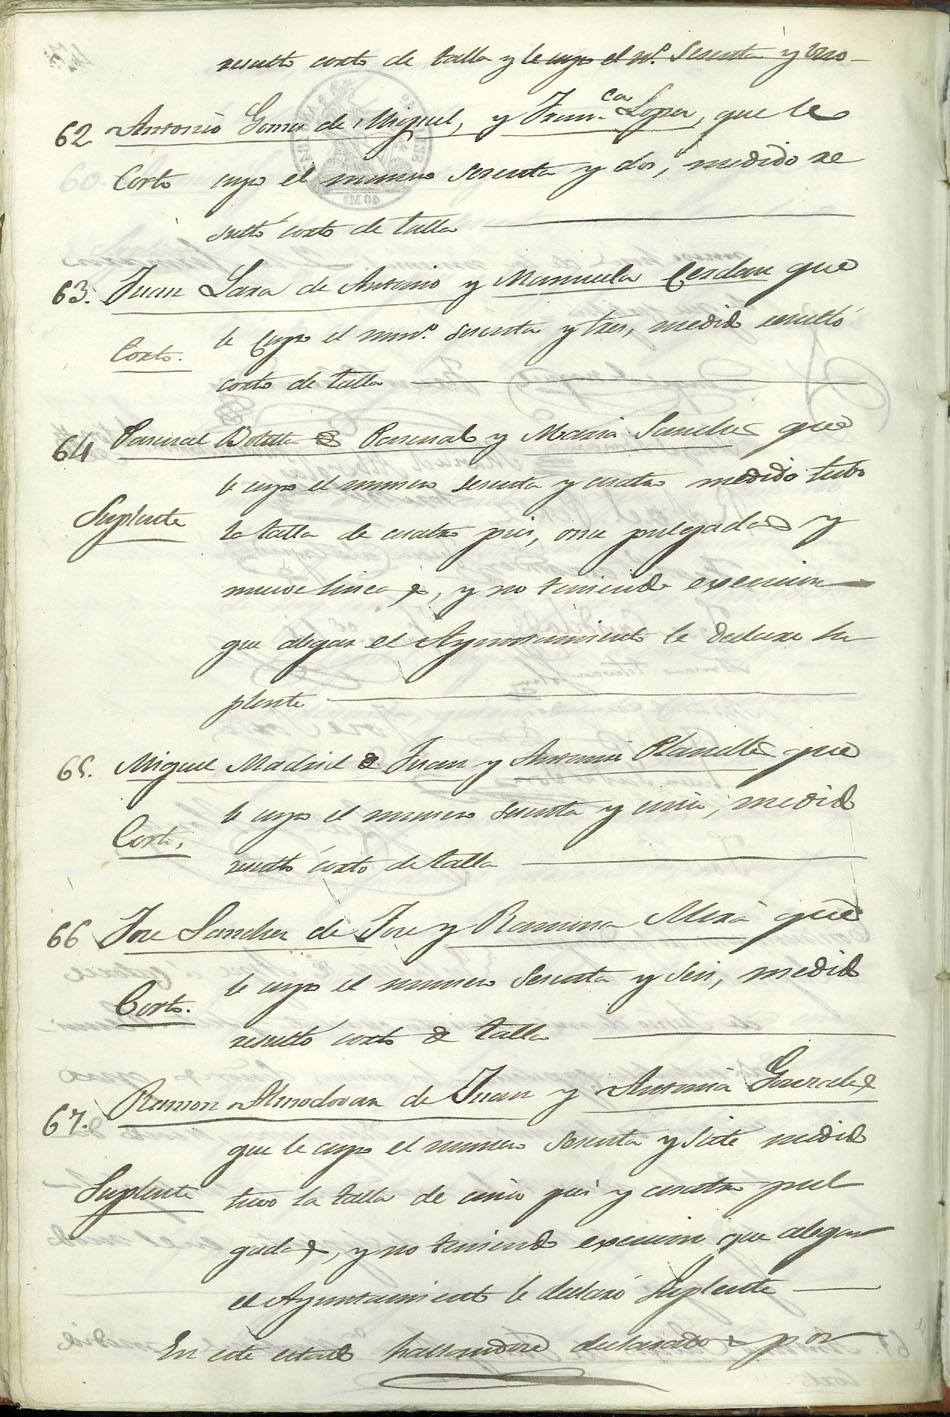 resultó corto de talla y le cupo el nº. Sesenta y uno
62 Antonio Gomez de Miguel, y Franca Lopez, que le
Corto cupo el numero sesenta y dos, medido re
sultó corto de talla
63. Juan Lara de Antonio y Manuela Cerdan que
le cupo el numº. sesenta y tres, medido resultó
Corto.
corto de talla
64 Pascual Botella de Pascual y Maria Sanchez que
le cupo el numero sesenta y cuatro medido tubo
Suplente
la talla de cuatro pies, once pulgadas y
nueve lineas, y no teniendo exencion
que alegar el Ayuntamiento le declaro su
plente
65. Miguel Madrid de Juan y Antonia Planelles que
le cupo el numero sesenta y cinco, medido
Corto.
resultó corto de talla
66 Jose Sanchez de Jose y Ramona Mira que
le cupo el numero Sesenta y seis, medido
Corto.
resultó corto de talla
67. Ramon Almodovar de Juan y Antonia
que le cupo el numero sesenta y siete medido
Suplente
tuvo la talla de cinco pies y cuatro pul
gadas, y no teniendo exencion que alegar
el Ayuntamiento le declaró Suplente
En este estado hallandose declarados por